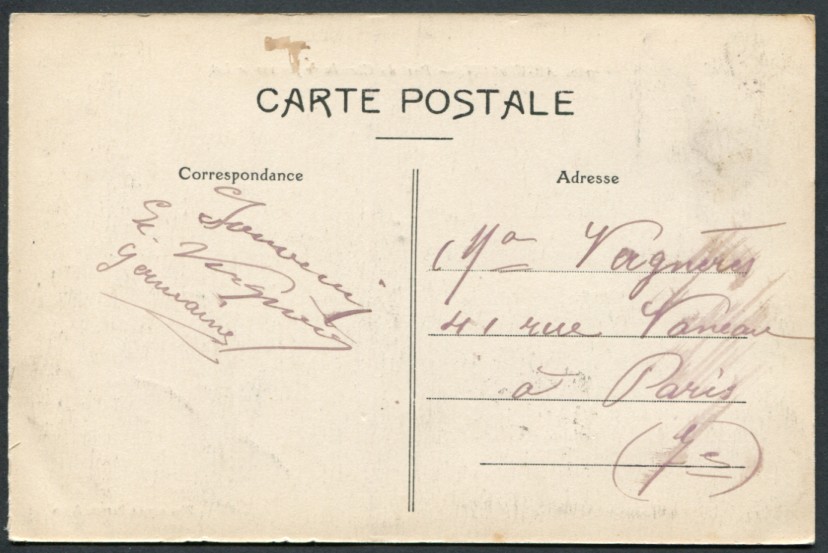 CARTE POSTALE
Correspondance
Souvenir
Vergnères
Germaine
Adresse
Vergnères
41 rue Vaneau
à Paris